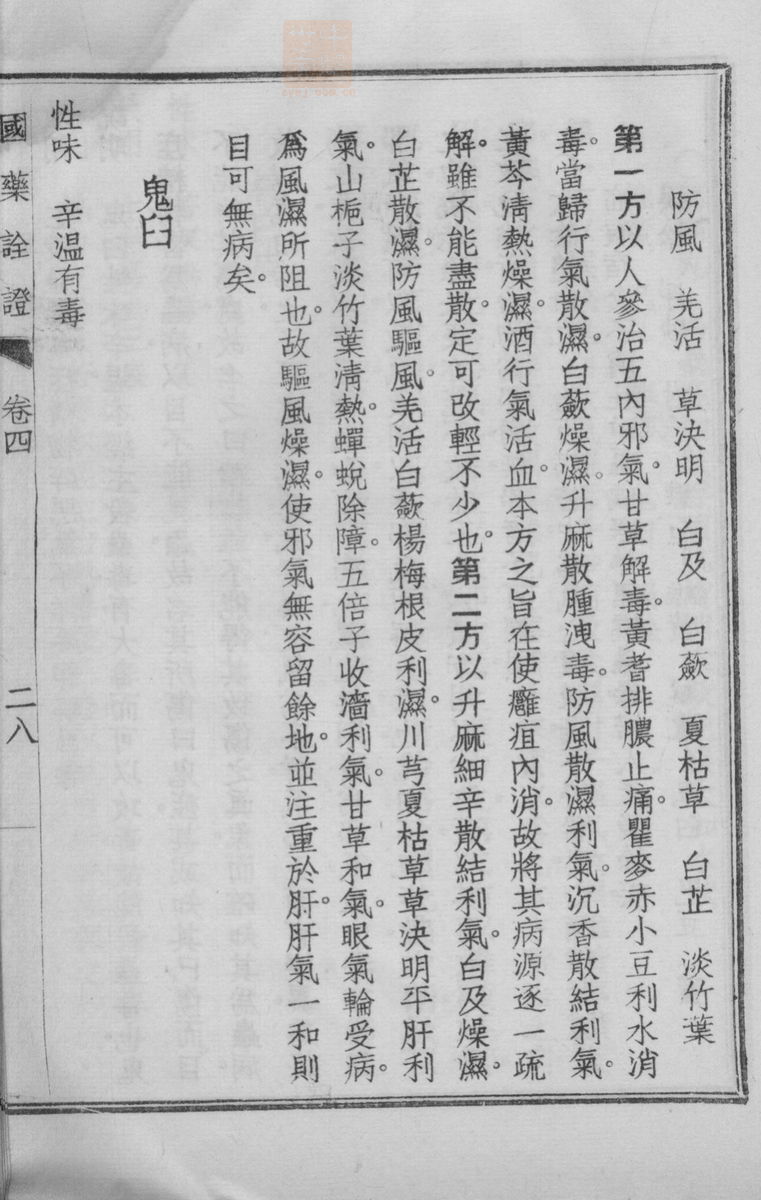 防風　羌活　草決明　白及　白蘞　夏枯草　白芷　淡竹葉
第一方以人參治五內邪氣。甘草解毒。黃耆排膿止痛。瞿麥赤小豆利水消
毒。當歸行氣散濕。白蘞燥濕。升麻散腫洩毒。防風散濕利氣。沉香散結利氣。
黃芩淸熱燥濕。酒行氣活血。本方之旨在使癰疽內消。故將其病源逐一疏
解。雖不能盡散。定可改輕不少也。第二方以升麻細辛散結利氣。白及燥濕。
白芷散濕。防風驅風。羌活白蘞楊梅根皮利濕。川芎夏枯草草決明平肝利
氣。山梔子淡竹葉淸熱。蟬蛻除障。五倍子收濇利氣。甘草和氣。眼氣輪受病。
爲風濕所阻也。故驅風燥濕。使邪氣無容留餘地。並注重於肝。肝氣一和則
目可無病矣。
鬼臼
性味　辛溫有毒
國藥詮證　卷四　二八